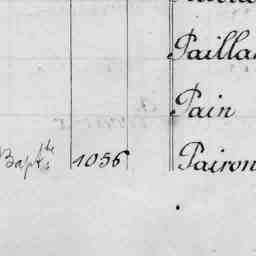 Pailla
Pain
Bapt.te 1056 Pairon